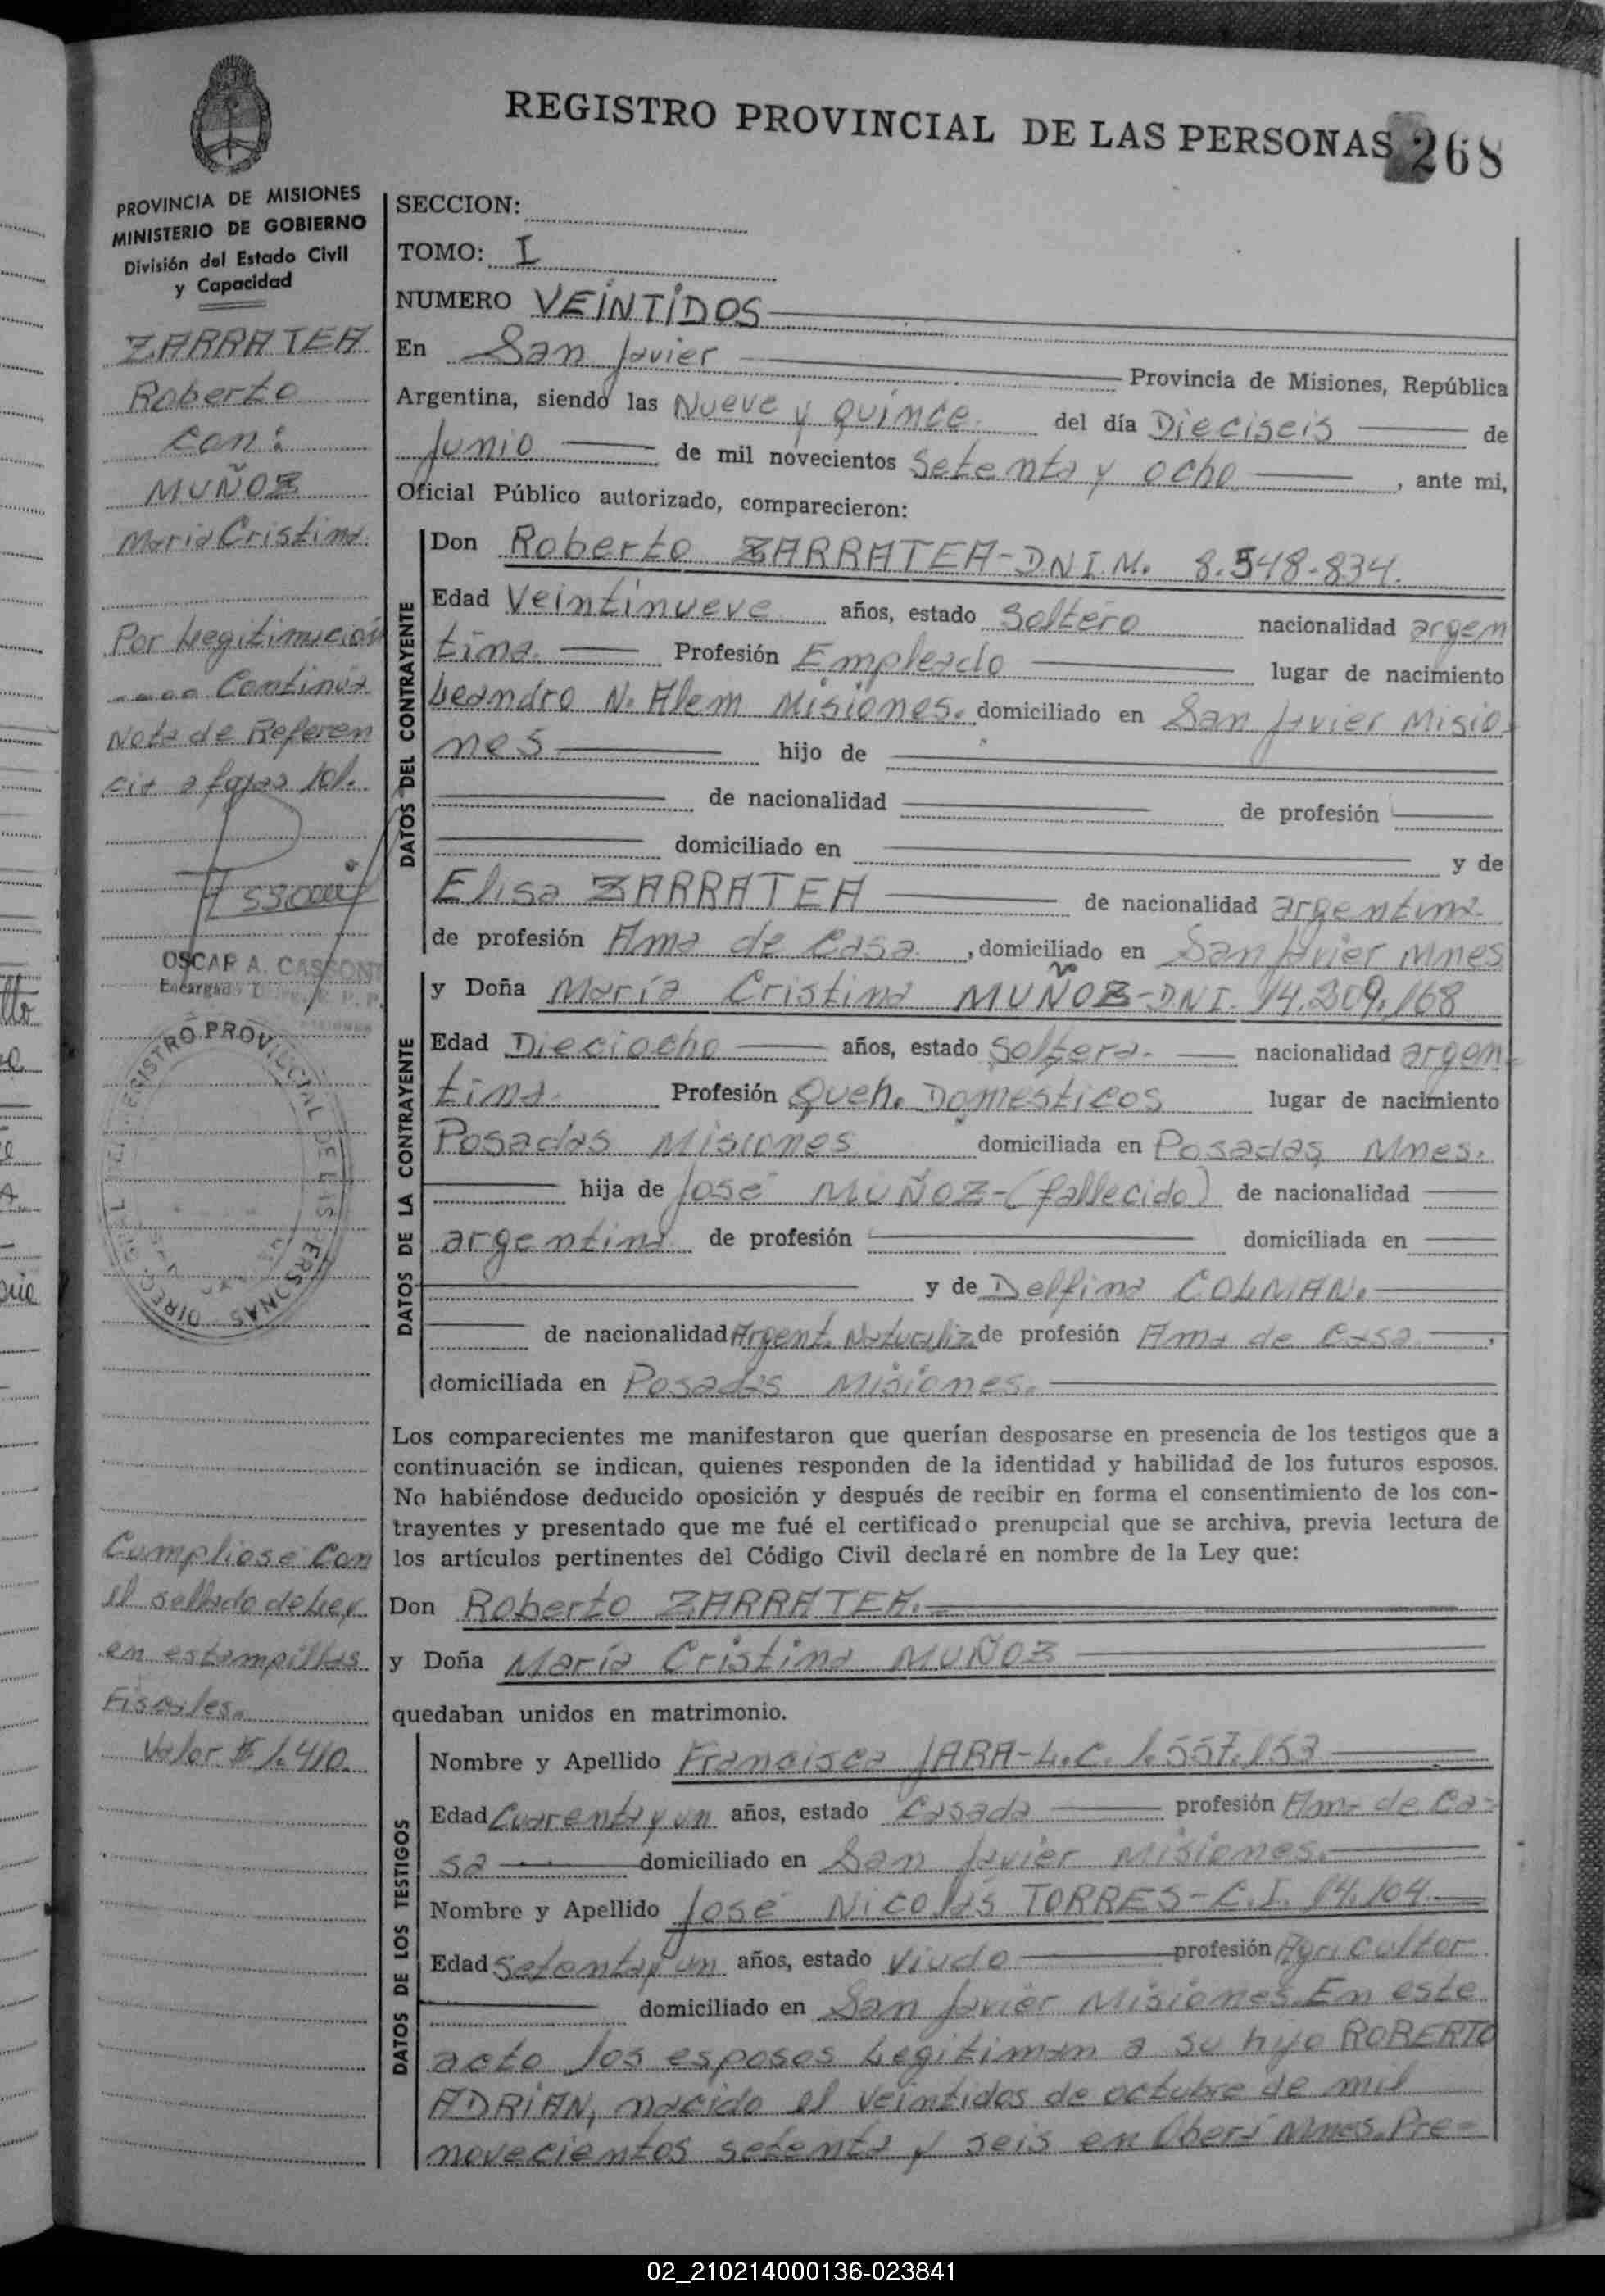 REGISTRO PROVINCIAL DE LAS PERSONAS 268
PROVINCIA DE MISIONES
MINISTERIO DE GOBIERNO
División del Estado Civil
y Capacidad
ZARRATEA
Roberto
con:
MUÑOZ
Maria Cristina.
Por Legitimación
Continúa
Nota de Referen
cia a fojas 101.
OSCAR A. CASSONI
Encargado
REGISTRO PROVINCIAL DE LAS PERSONAS
DIRECC GRAL
Cumpliose con
el sellado de Ley
en estampillas
Fiscales.
Valor $ 1.410.
SECCION:
TOMO: I
NUMERO VEINTIDOS
En San Javier Provincia de Misiones, República
Argentina, siendo las Nueve y quince del día Dieciseis de
Junio de mil novecientos Setenta y ocho, ante mi,
Oficial Público autorizado, comparecieron:
DATOS DEL CONTRAYENTE
Don Roberto ZARRATEA-D.N.I.M. 8.548.834.
Edad Veintinueve años, estado Soltero nacionalidad argen
tina. Profesión Empleado lugar de nacimiento
Leandro N. Alem Misiones. domiciliado en San Javier Misio-
nes hijo de
de nacionalidad de profesión
domiciliado en y de
Elisa ZARRATEA de nacionalidad argentina.
de profesión Ama de Casa., domiciliado en San Javier Mnes
DATOS DE LA CONTRAYENTE
y Doña María Cristina MUÑOZ-D.N.I. 14.209.168
Edad Dieciocho años, estado Soltera. nacionalidad argen-
tina. Profesión Queh. Domesticos lugar de nacimiento
Posadas Misiones domiciliada en Posadas Mnes.
hija de José MUÑOZ-(fallecido) de nacionalidad
argentina de profesión domiciliada en
y de Delfina COLMAN.
de nacionalidad Argent. Naturaliz de profesión Ama de Casa,
domiciliada en Posadas Misiones.
Los comparecientes me manifestaron que querían desposarse en presencia de los testigos que a
continuación se indican, quienes responden de la identidad y habilidad de los futuros esposos.
No habiéndose deducido oposición y después de recibir en forma el consentimiento de los con-
trayentes y presentado que me fué el certificado prenupcial que se archiva, previa lectura de
los artículos pertinentes del Código Civil declaré en nombre de la Ley que:
Don Roberto ZARRATEA.
y Doña María Cristina MUÑOZ
quedaban unidos en matrimonio.
DATOS DE LOS TESTIGOS
Nombre y Apellido Francisca JARA-L.C. 1.557.153
Edad Cuarenta y un años, estado Casada profesión Ama de Ca-
sa domiciliado en San Javier Misiones.
Nombre y Apellido José Nicolás TORRES-C.I. 14.104
Edad Setenta y un años, estado Viudo profesión Agricultor
domiciliado en San Javier Misiones. En este
acto los esposos Legitiman a su hijo ROBERTO
ADRIAN, nacido el veintidos de octubre de mil
novecientos setenta y seis en Oberá Mnes. Pre=
02_210214000136-023841